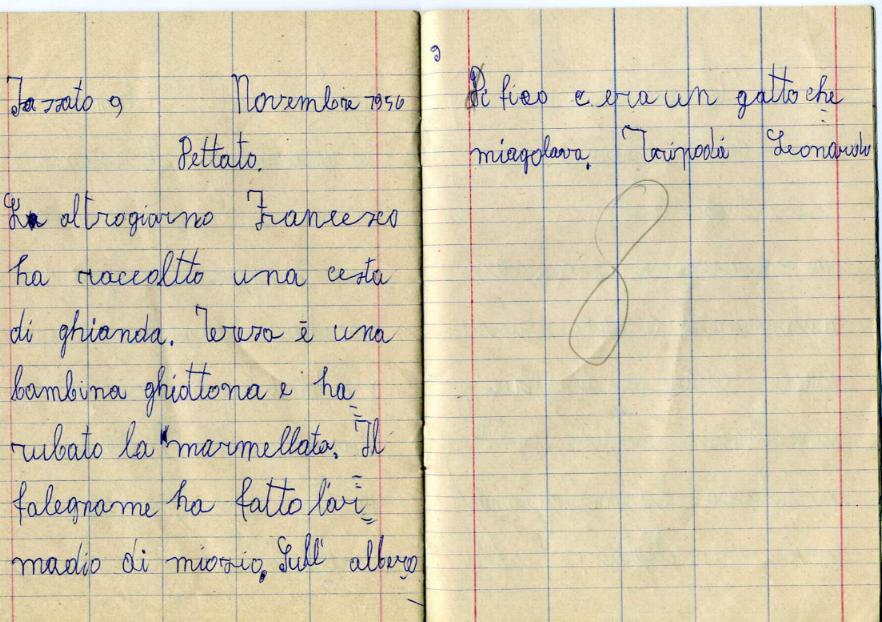 Fassato 9 Novembre 1956
Dettato.
L altrogiorno Francesco
ha raccoltto una cesta
di ghianda. Teresa è una
bambina ghiottona e ha
rubato la marmellata. Il
falegname ha fatto l'ar=
madio di miozio. Sull' albero
9
Di fico c era un gatto che
miagolava. Tripodi Leonardo
8